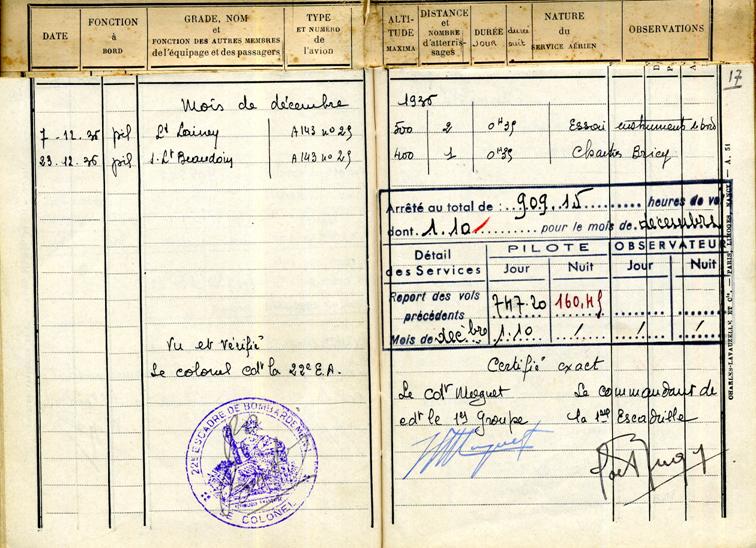 DATE
FONCTION à BORD
GRADE, NOM et FONCTION DES AUTRES MEMBRES de l'équipage et des passagers
TYPE ET NUMÉRO de l'avion
ALTITUDE MAXIMA
DISTANCE et NOMBRE d'atterrissages
DURÉE JOUR
durée nuit
NATURE du SERVICE AÉRIEN
OBSERVATIONS
17
Mois de décembre 1936
7-12.36 pil Lt Lainey A143 no 29 500 2 0H35 Essai instruments de bord
23.12.36 pil S.Lt Beaudoin A143 no 29 400 1 0H35 Chartres Bricy
Arrêté au total de : 909.15 heures de vol
dont 1.10 pour le mois de décembre
Détail des Services
PILOTE OBSERVATEUR
Jour Nuit Jour Nuit
Report des vols précédents 747.20 160.45
Mois de décbre 1.10 / / /
Vu et vérifié
Le colonel cdt la 22e E.A.
22E ESCADRE DE BOMBARDEMENT
LE COLONEL
Certifié exact
Le cdt
cdt le 1er Groupe
Le commandant de
la 1re Escadrille
CHARLES-LAVAUZELLE ET Cie. — PARIS, LIMOGES, NANCY — A. 51